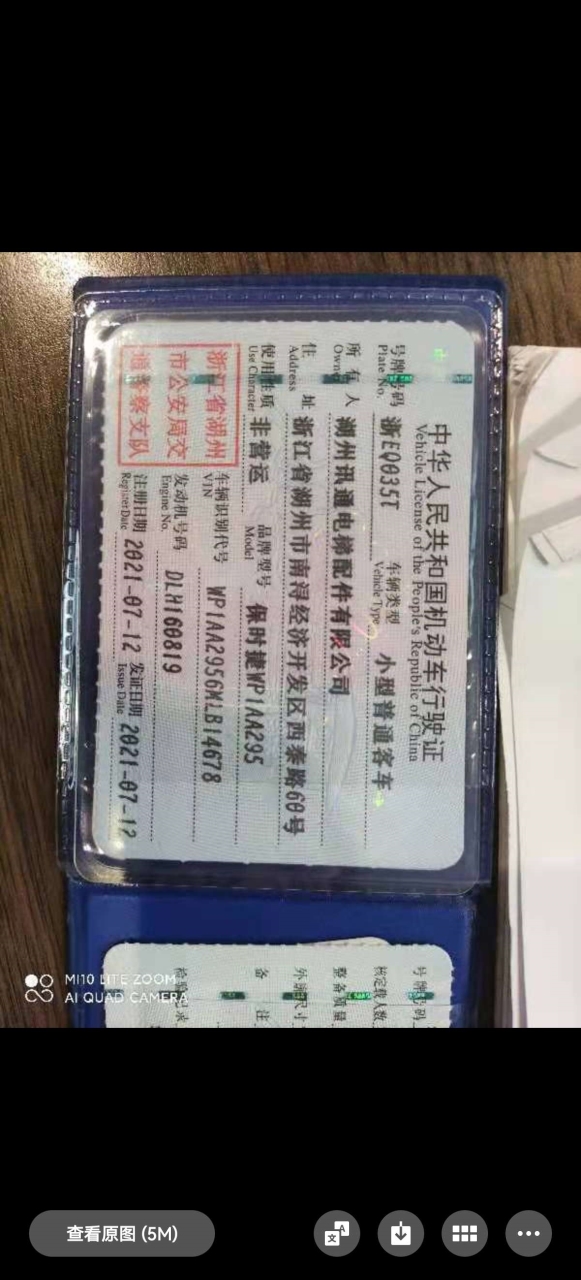 中华人民共和国机动车行驶证
Vehicle License of the People's Republic of China
号牌号码 浙EQ035T 车辆类型 小型普通客车
Plate No. Vehicle Type
所有人 湖州讯通电梯配件有限公司
Owner
住址 浙江省湖州市南浔经济开发区西泰路60号
Address
使用性质 非营运 品牌型号 保时捷WP1AA295
Use Character Model
浙江省湖州
市公安局交
通警察支队
车辆识别代号 WP1AA2956MLB14678
VIN
发动机号码 DLH160819
Engine No.
注册日期 2021-07-12 发证日期 2021-07-12
Register Date Issue Date
号牌号码
核定载人数
整备质量
外廓尺寸
备注
检验记录
MI10 LITE ZOOM
AI QUAD CAMERA
查看原图 (5M)